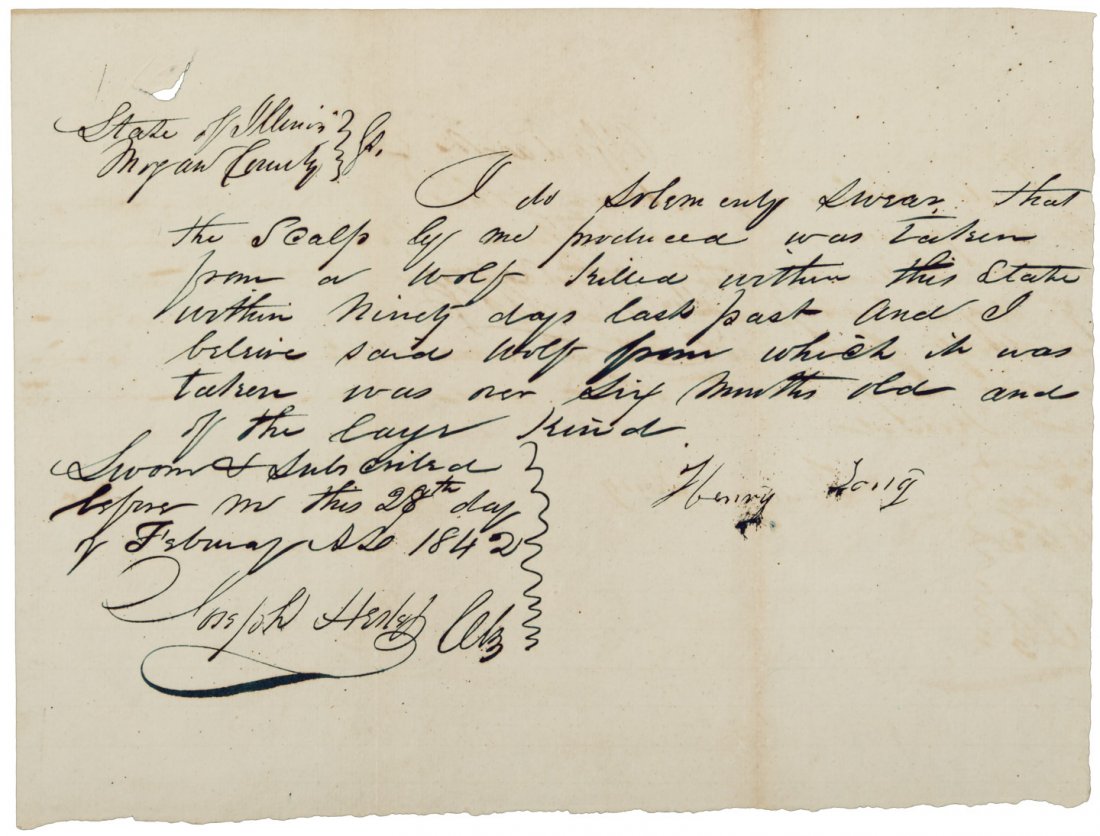 State of Illinois
Mogan County } Ss.
I do Solemenly Swear that
the Scalp by me produced was taken
from a Wolf killed within this State
within Ninety days last past and I
beleive said Wolf from which it was
taken was over Six Months old and
of the large kind
Henry Long
Sworn & Subscribed
before me this 28th day
of Februay AD 1842
Joseph Clk